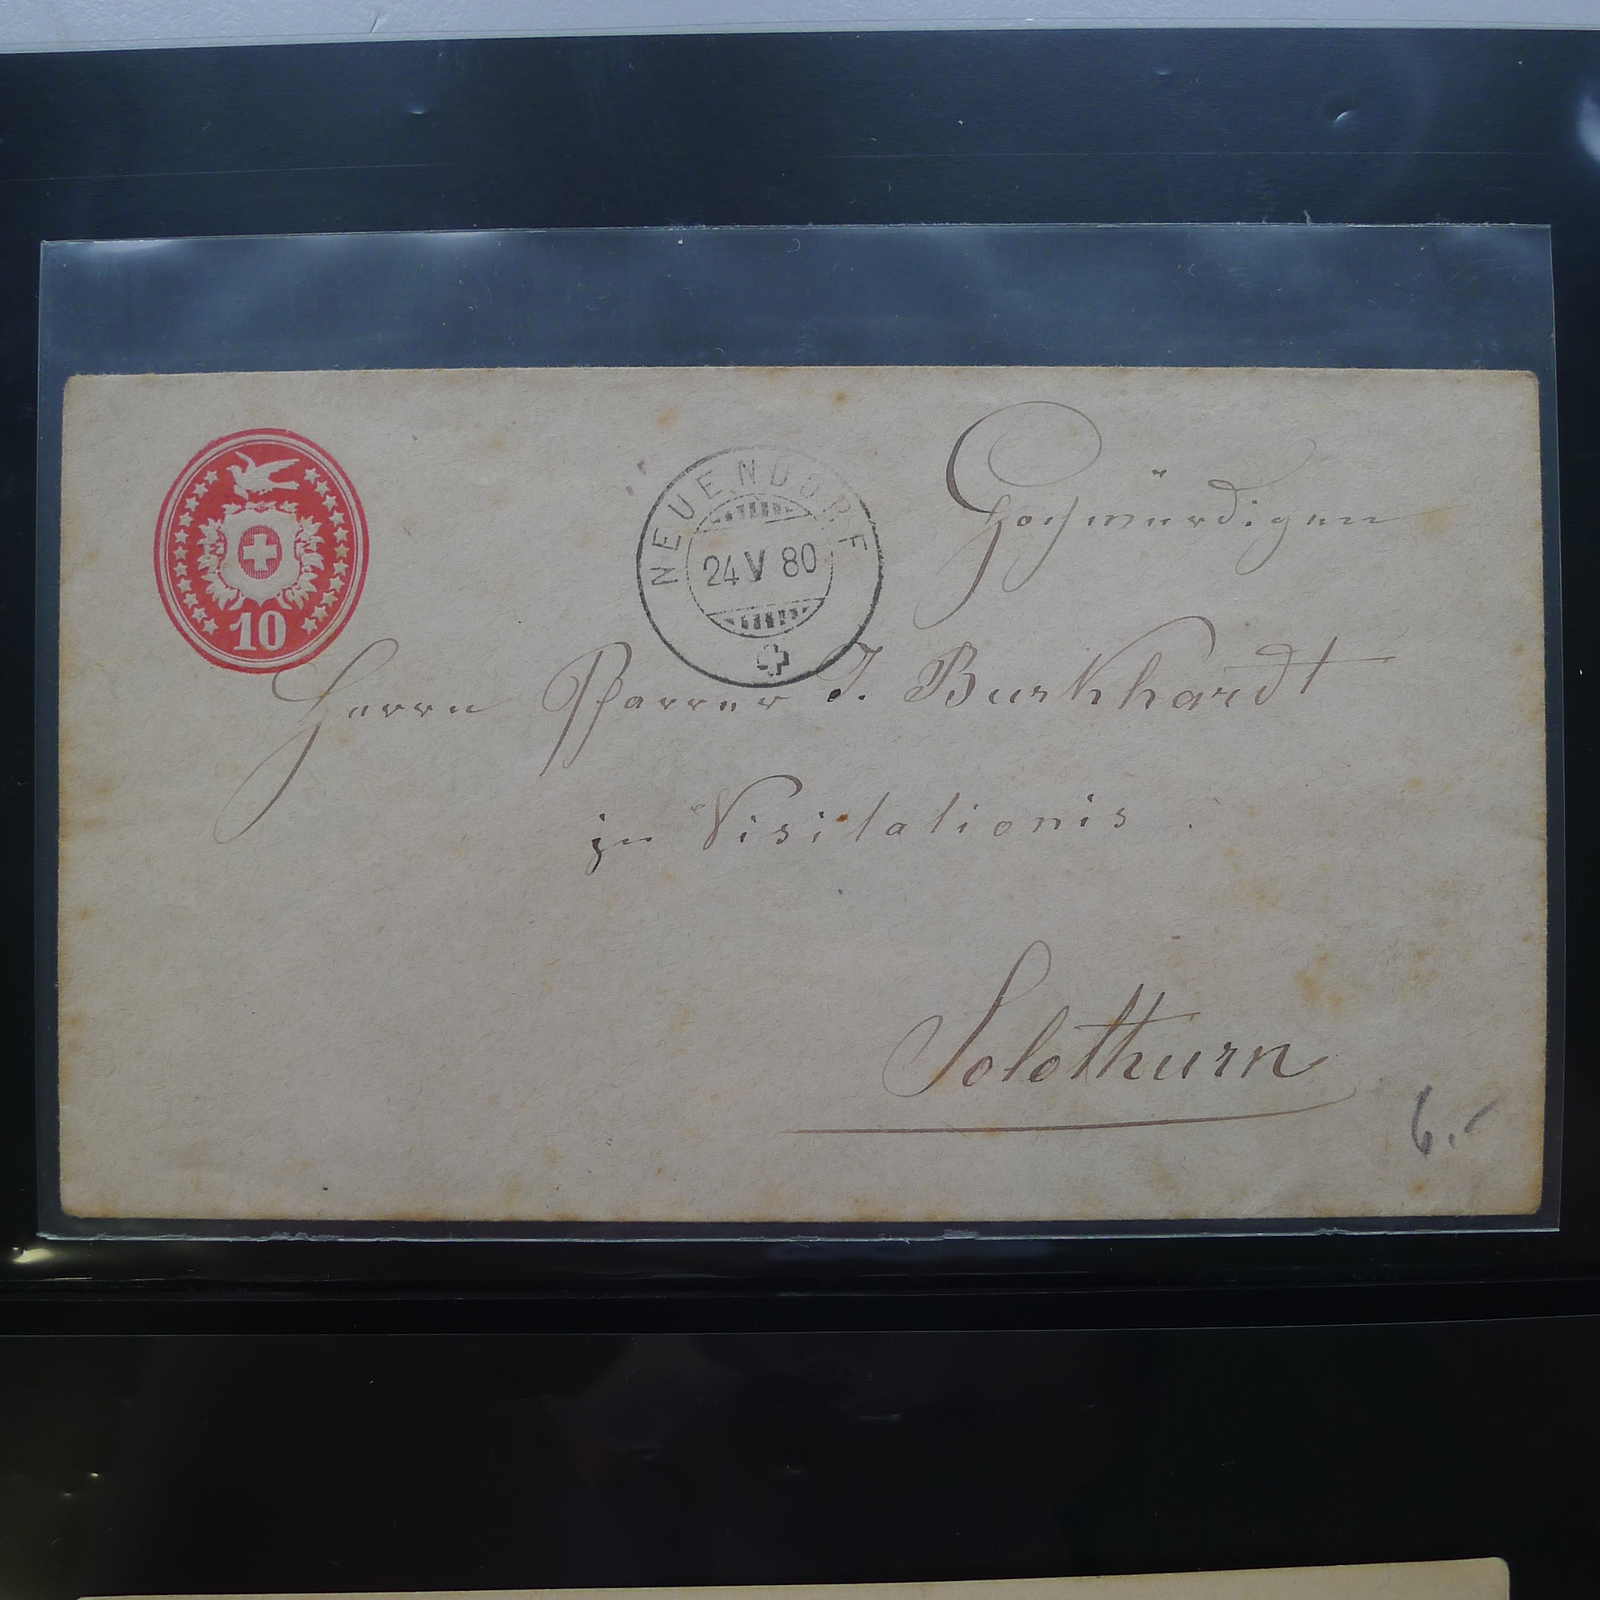 10
NEUENDORF
24 V 80
Hochwürdigen
Herrn Pfarrer J. Burkhardt
zu Visitationis
Solothurn
6.-